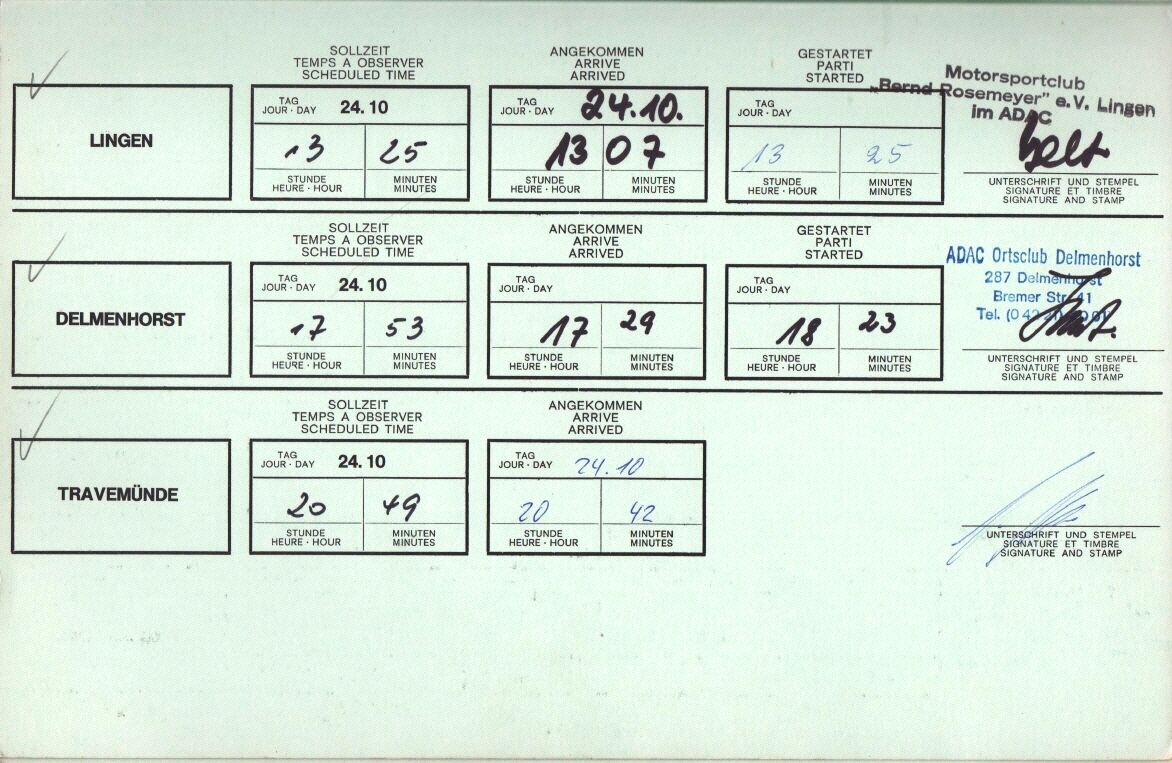 SOLLZEIT
TEMPS A OBSERVER
SCHEDULED TIME
ANGEKOMMEN
ARRIVE
ARRIVED
GESTARTET
PARTI
STARTED
Motorsportclub
„Bernd Rosemeyer" e.V. Lingen
im ADAC
LINGEN
TAG
JOUR · DAY 24.10
13 25
STUNDE
HEURE · HOUR
MINUTEN
MINUTES
TAG
JOUR · DAY 24.10.
13 07
STUNDE
HEURE · HOUR
MINUTEN
MINUTES
TAG
JOUR · DAY
13 25
STUNDE
HEURE · HOUR
MINUTEN
MINUTES
UNTERSCHRIFT UND STEMPEL
SIGNATURE ET TIMBRE
SIGNATURE AND STAMP
SOLLZEIT
TEMPS A OBSERVER
SCHEDULED TIME
ANGEKOMMEN
ARRIVE
ARRIVED
GESTARTET
PARTI
STARTED
ADAC Ortsclub Delmenhorst
287 Delmenhorst
Bremer Str. 41
Tel.
DELMENHORST
TAG
JOUR · DAY 24.10
17 53
STUNDE
HEURE · HOUR
MINUTEN
MINUTES
TAG
JOUR · DAY
17 29
STUNDE
HEURE · HOUR
MINUTEN
MINUTES
TAG
JOUR · DAY
18 23
STUNDE
HEURE · HOUR
MINUTEN
MINUTES
UNTERSCHRIFT UND STEMPEL
SIGNATURE ET TIMBRE
SIGNATURE AND STAMP
SOLLZEIT
TEMPS A OBSERVER
SCHEDULED TIME
ANGEKOMMEN
ARRIVE
ARRIVED
TRAVEMÜNDE
TAG
JOUR · DAY 24.10
20 49
STUNDE
HEURE · HOUR
MINUTEN
MINUTES
TAG
JOUR · DAY 24.10
20 42
STUNDE
HEURE · HOUR
MINUTEN
MINUTES
UNTERSCHRIFT UND STEMPEL
SIGNATURE ET TIMBRE
SIGNATURE AND STAMP